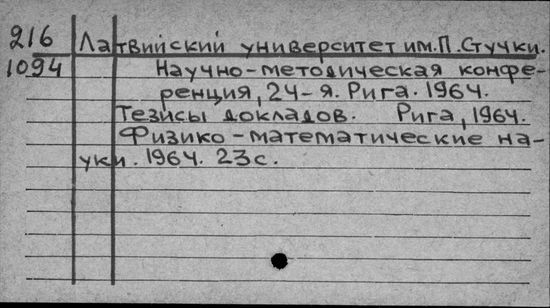 216 Латвийский университет им. П. Стучки.
1094 Научно-методическая конфе-
ренция, 24-я. Рига. 1964.
Тезисы докладов. Рига, 1964.
Физико-математические на-
уки. 1964. 23с.